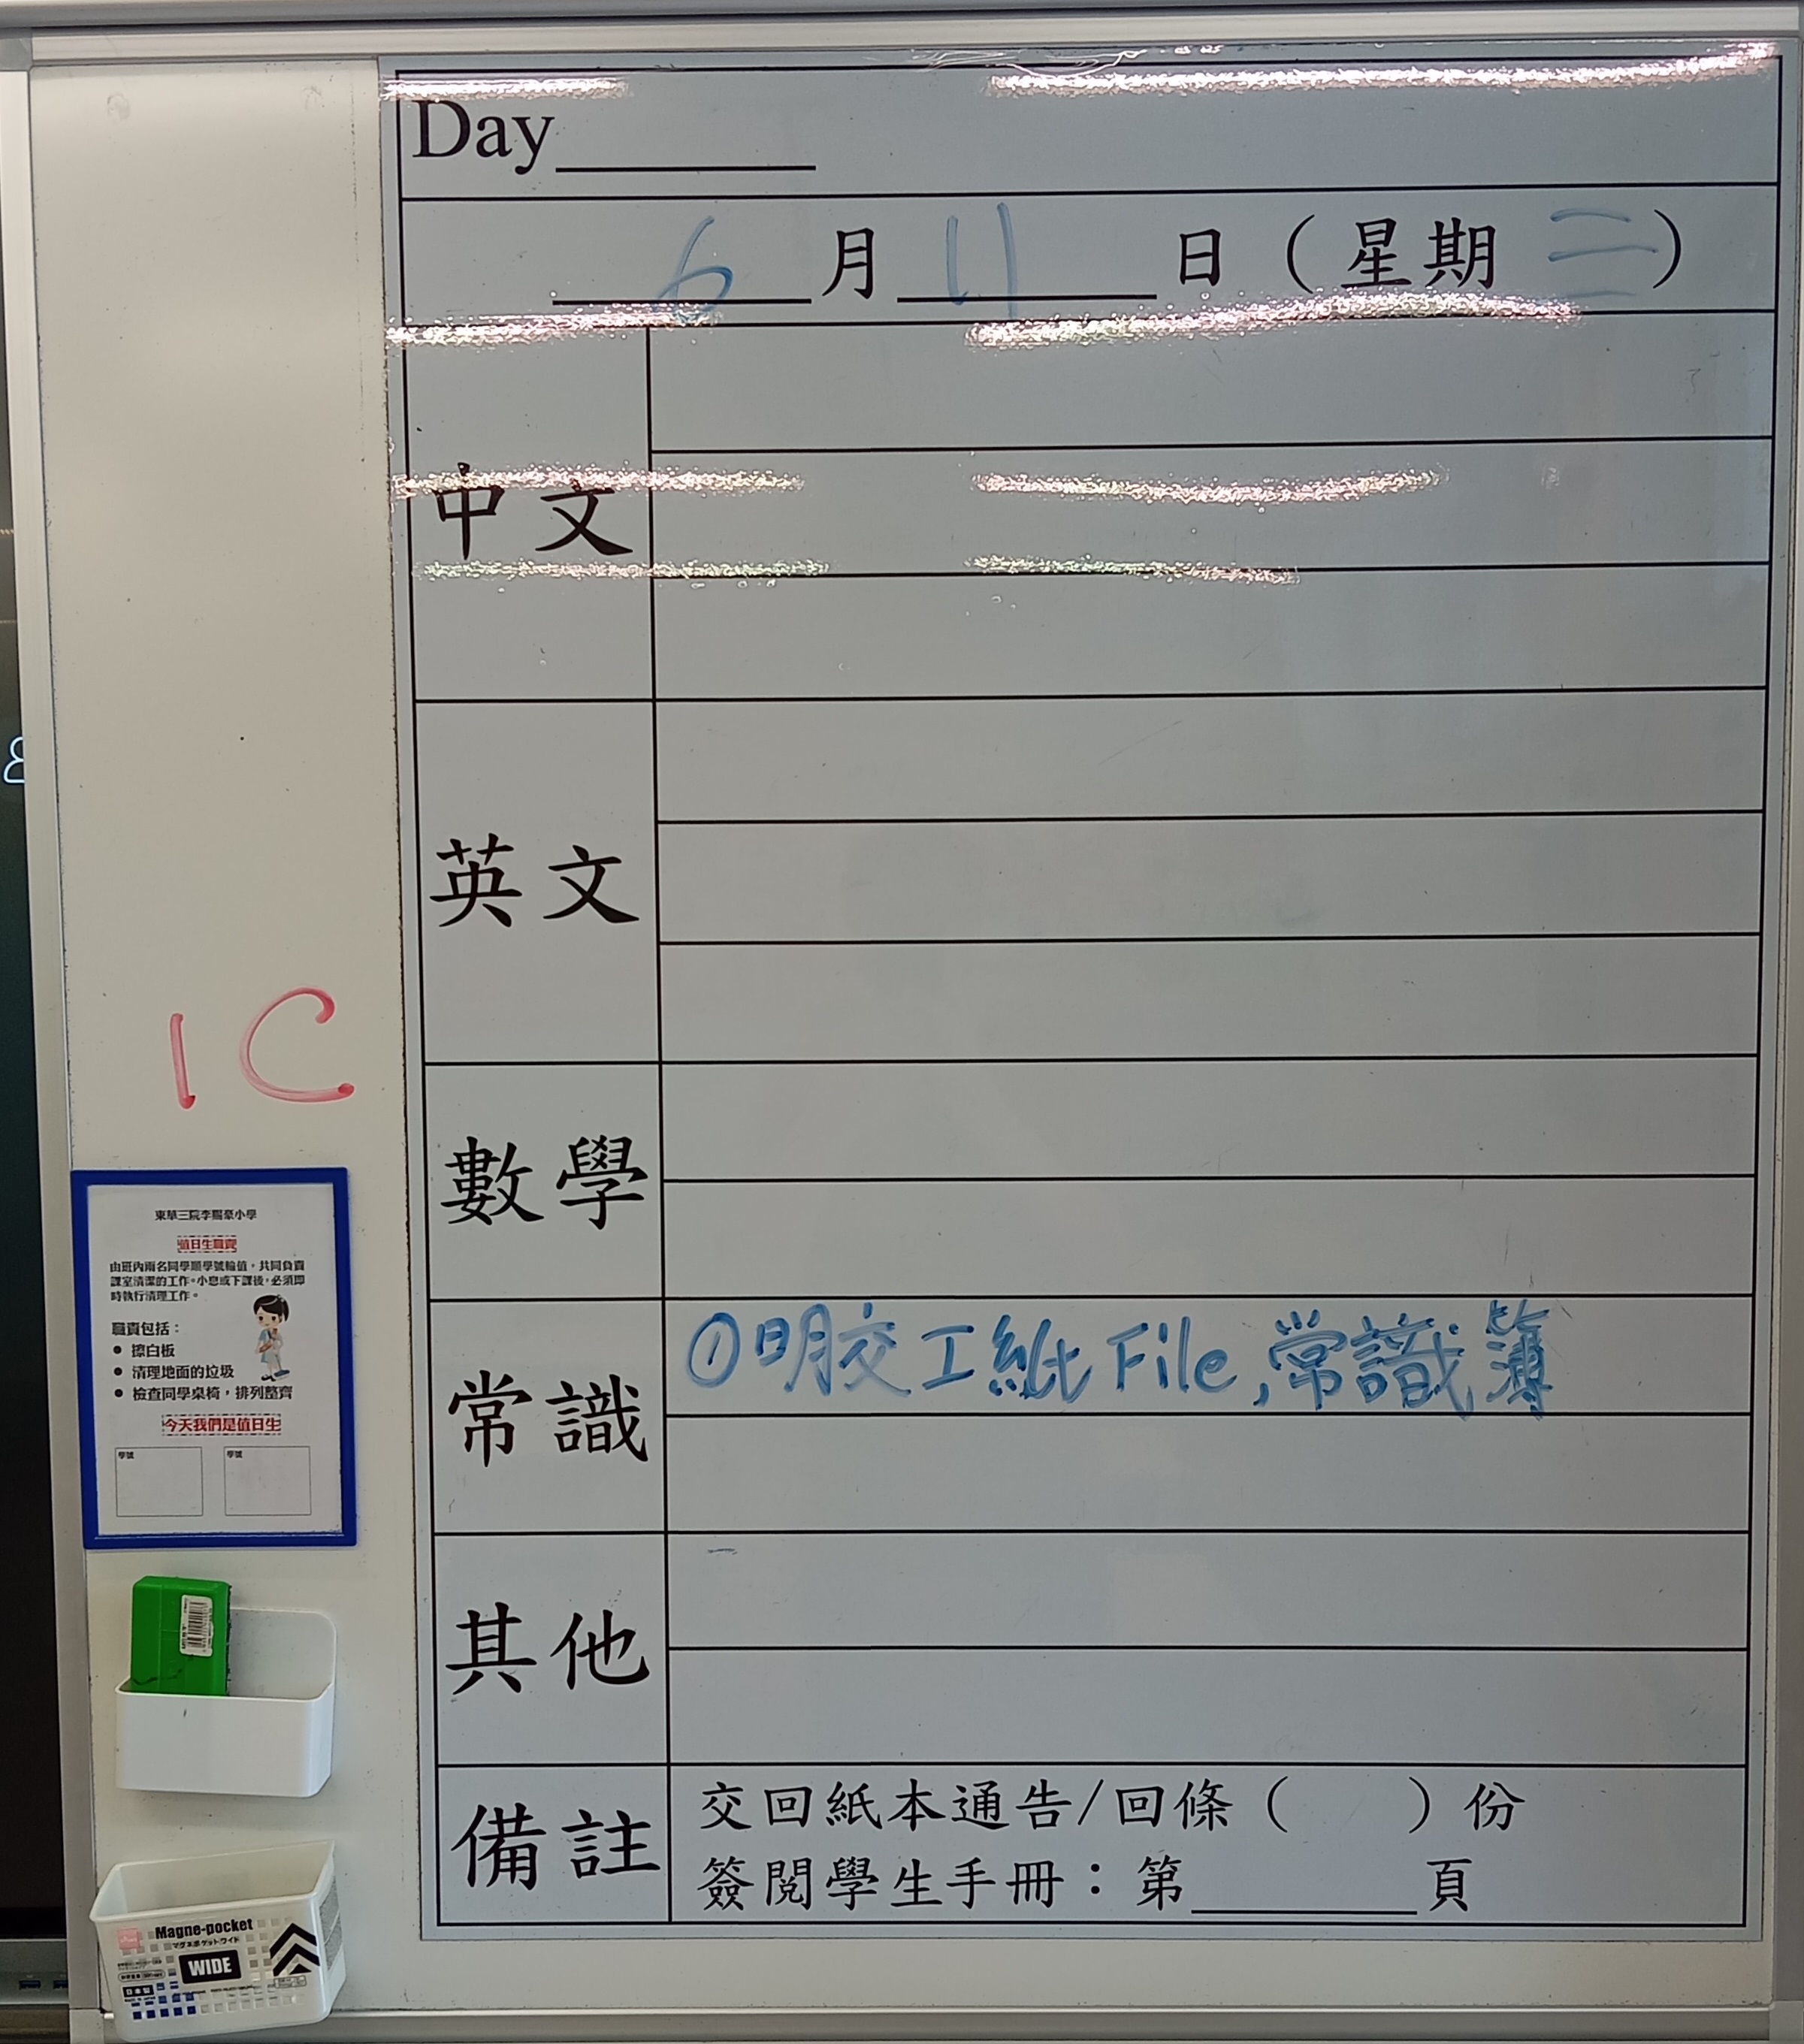 Day
6月11日（星期三）
中文
英文
數學
常識
①明交工紙File,常識簿
其他
備註
交回紙本通告/回條（ ）份
簽閱學生手冊：第 頁
1C
東華三院李賜豪小學
值日生職責
由班內兩名同學順學號輪值，共同負責
課室清潔的工作。小息或下課後，必須即
時執行清理工作。
職責包括：
• 擦白板
• 清理地面的垃圾
• 檢查同學桌椅，排列整齊
今天我們是值日生
學號 學號
Magne-pocket
マグネポケットワイド
WIDE
日本製